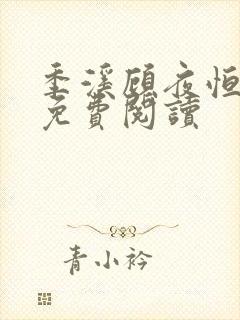 季溪顾夜恒
免費閱讀
青小衿